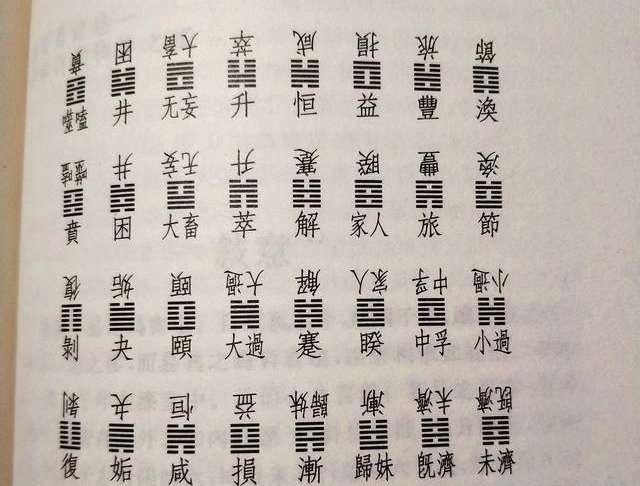 賁 困 大畜 萃 咸 損 旅 節
噬嗑 井 无妄 升 恒 益 豐 渙
噬嗑 井 无妄 升 蹇 睽 豐 渙
賁 困 大畜 萃 解 家人 旅 節
復 姤 頤 大過 解 家人 中孚 小過
剝 夬 頤 大過 蹇 睽 中孚 小過
剝 夬 恒 益 歸妹 漸 未濟 既濟
復 姤 咸 損 漸 歸妹 既濟 未濟